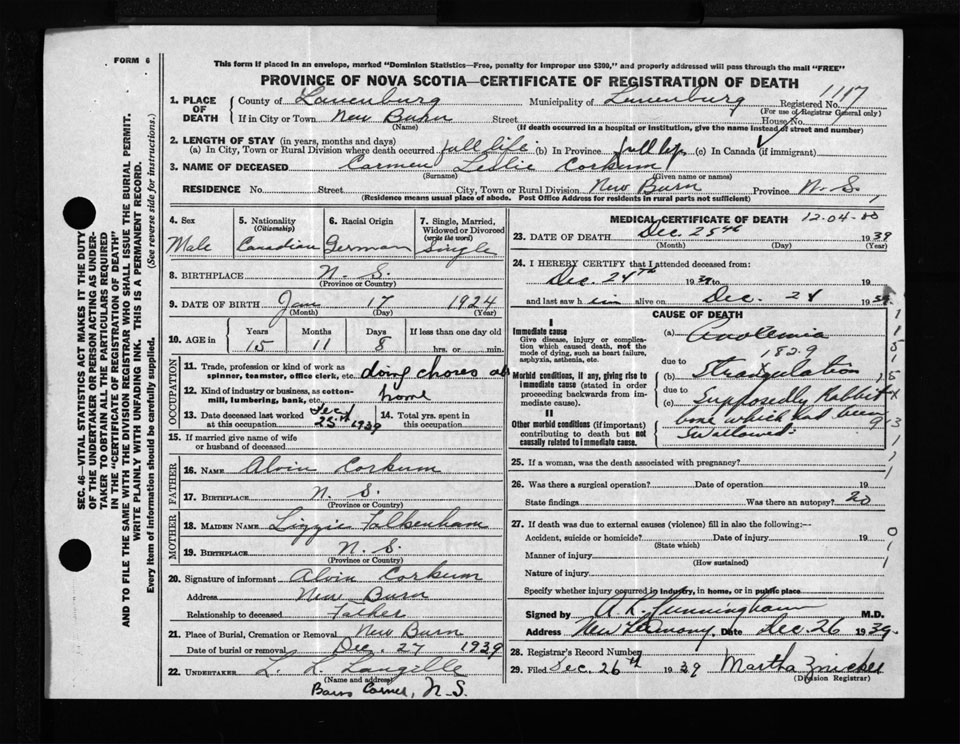 FORM 6
This form if placed in an envelope, marked "Dominion Statistics—Free, penalty for improper use $300," and properly addressed will pass through the mail "FREE"
PROVINCE OF NOVA SCOTIA—CERTIFICATE OF REGISTRATION OF DEATH
1. PLACE OF DEATH County of Lunenburg Municipality of Lunenburg Registered No. 1117
(For use of Registrar General only)
If in City or Town New Burn Street House No.
(Name) (If death occurred in a hospital or institution, give the name instead of street and number)
2. LENGTH OF STAY (in years, months and days)
(a) In City, Town or Rural Division where death occurred full life (b) In Province full life (c) In Canada (if immigrant)
3. NAME OF DECEASED Carmen Leslie Corkum
(Surname) (Given name or names)
RESIDENCE No. Street City, Town or Rural Division New Burn Province N. S.
(Residence means usual place of abode. Post Office Address for residents in rural parts not sufficient)
4. Sex Male
5. Nationality (Citizenship) Canadian
6. Racial Origin German
7. Single, Married, Widowed or Divorced (write the word) Single
8. BIRTHPLACE N. S.
(Province or Country)
9. DATE OF BIRTH Jan 17 1924
(Month) (Day) (Year)
10. AGE in Years Months Days If less than one day old
15 11 8 hrs. or min.
OCCUPATION
11. Trade, profession or kind of work as spinner, teamster, office clerk, etc. doing chores at
12. Kind of industry or business, as cotton-mill, lumbering, bank, etc. home
13. Date deceased last worked at this occupation 25th 1939
14. Total yrs. spent in this occupation
15. If married give name of wife or husband of deceased
FATHER
16. NAME Alvin Corkum
17. BIRTHPLACE N. S.
(Province or Country)
MOTHER
18. MAIDEN NAME Lizzie Falkenham
19. BIRTHPLACE N. S.
(Province or Country)
20. Signature of informant Alvin Corkum
Address New Burn
Relationship to deceased Father
21. Place of Burial, Cremation or Removal New Burn
Date of burial or removal Dec. 27 1939
22. UNDERTAKER L. L. Langille
(Name and address)
Barss Corner, N. S.
MEDICAL CERTIFICATE OF DEATH 12-04-00
23. DATE OF DEATH Dec. 25th 1939
(Month) (Day) (Year)
24. I HEREBY CERTIFY that I attended deceased from:
Dec. 24th 1939 to 19
and last saw him alive on Dec. 24 1939
CAUSE OF DEATH
I
Immediate cause
Give disease, injury or complication which caused death, not the mode of dying, such as heart failure, asphyxia, asthenia, etc.
(a)
1829
due to
Morbid conditions, if any, giving rise to immediate cause (stated in order proceeding backwards from immediate cause).
(b) Strangulation
due to
(c) Supposedly Rabbit
II
Other morbid conditions (if important) contributing to death but not causally related to immediate cause.
bone which had been
swallowed.
25. If a woman, was the death associated with pregnancy?
26. Was there a surgical operation? Date of operation 19
State findings Was there an autopsy? no
27. If death was due to external causes (violence) fill in also the following:—
Accident, suicide or homicide? Date of injury 19
(State which)
Manner of injury
(How sustained)
Nature of injury
Specify whether injury occurred in industry, in home, or in public place
Signed by A. R. Cunningham M.D.
Address New Germany Date Dec 26 1939.
28. Registrar's Record Number
29. Filed Dec. 26th 1939 Martha Zwicker
(Division Registrar)
SEC. 46—VITAL STATISTICS ACT MAKES IT THE DUTY
OF THE UNDERTAKER OR PERSON ACTING AS UNDER-
TAKER TO OBTAIN ALL THE PARTICULARS REQUIRED
IN THE "CERTIFICATE OF REGISTRATION OF DEATH"
AND TO FILE THE SAME WITH THE DIVISION REGISTRAR WHO SHALL ISSUE THE BURIAL PERMIT.
WRITE PLAINLY WITH UNFADING INK. THIS IS A PERMANENT RECORD.
Every item of information should be carefully supplied. (See reverse side for instructions.)